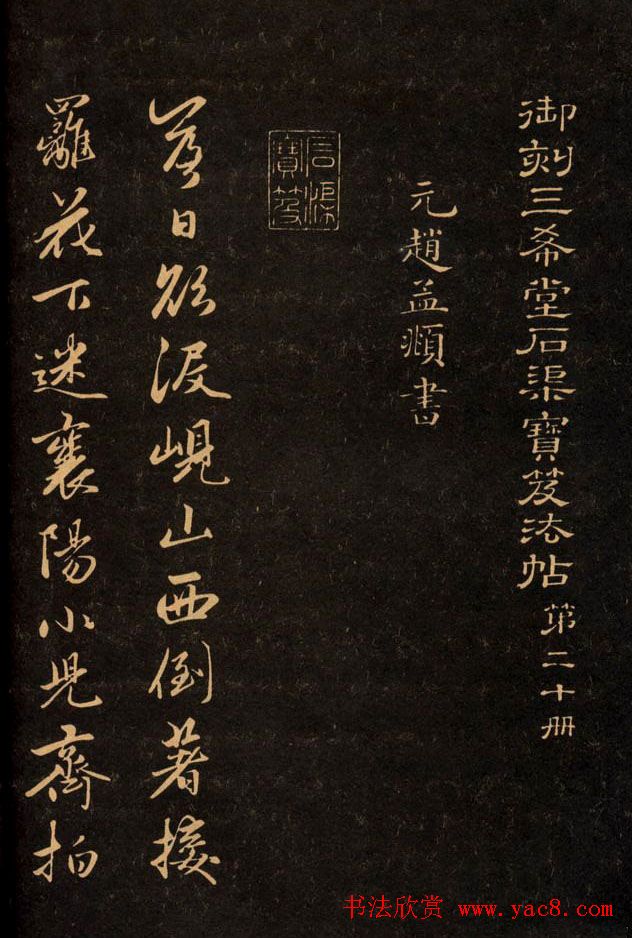 御刻三希堂石渠寶笈法帖 第二十册
元趙孟頫書
石渠寶笈
落日欲没峴山西倒著接
䍦花下迷襄陽小兒齊拍
书法欣赏 www.yac8.com